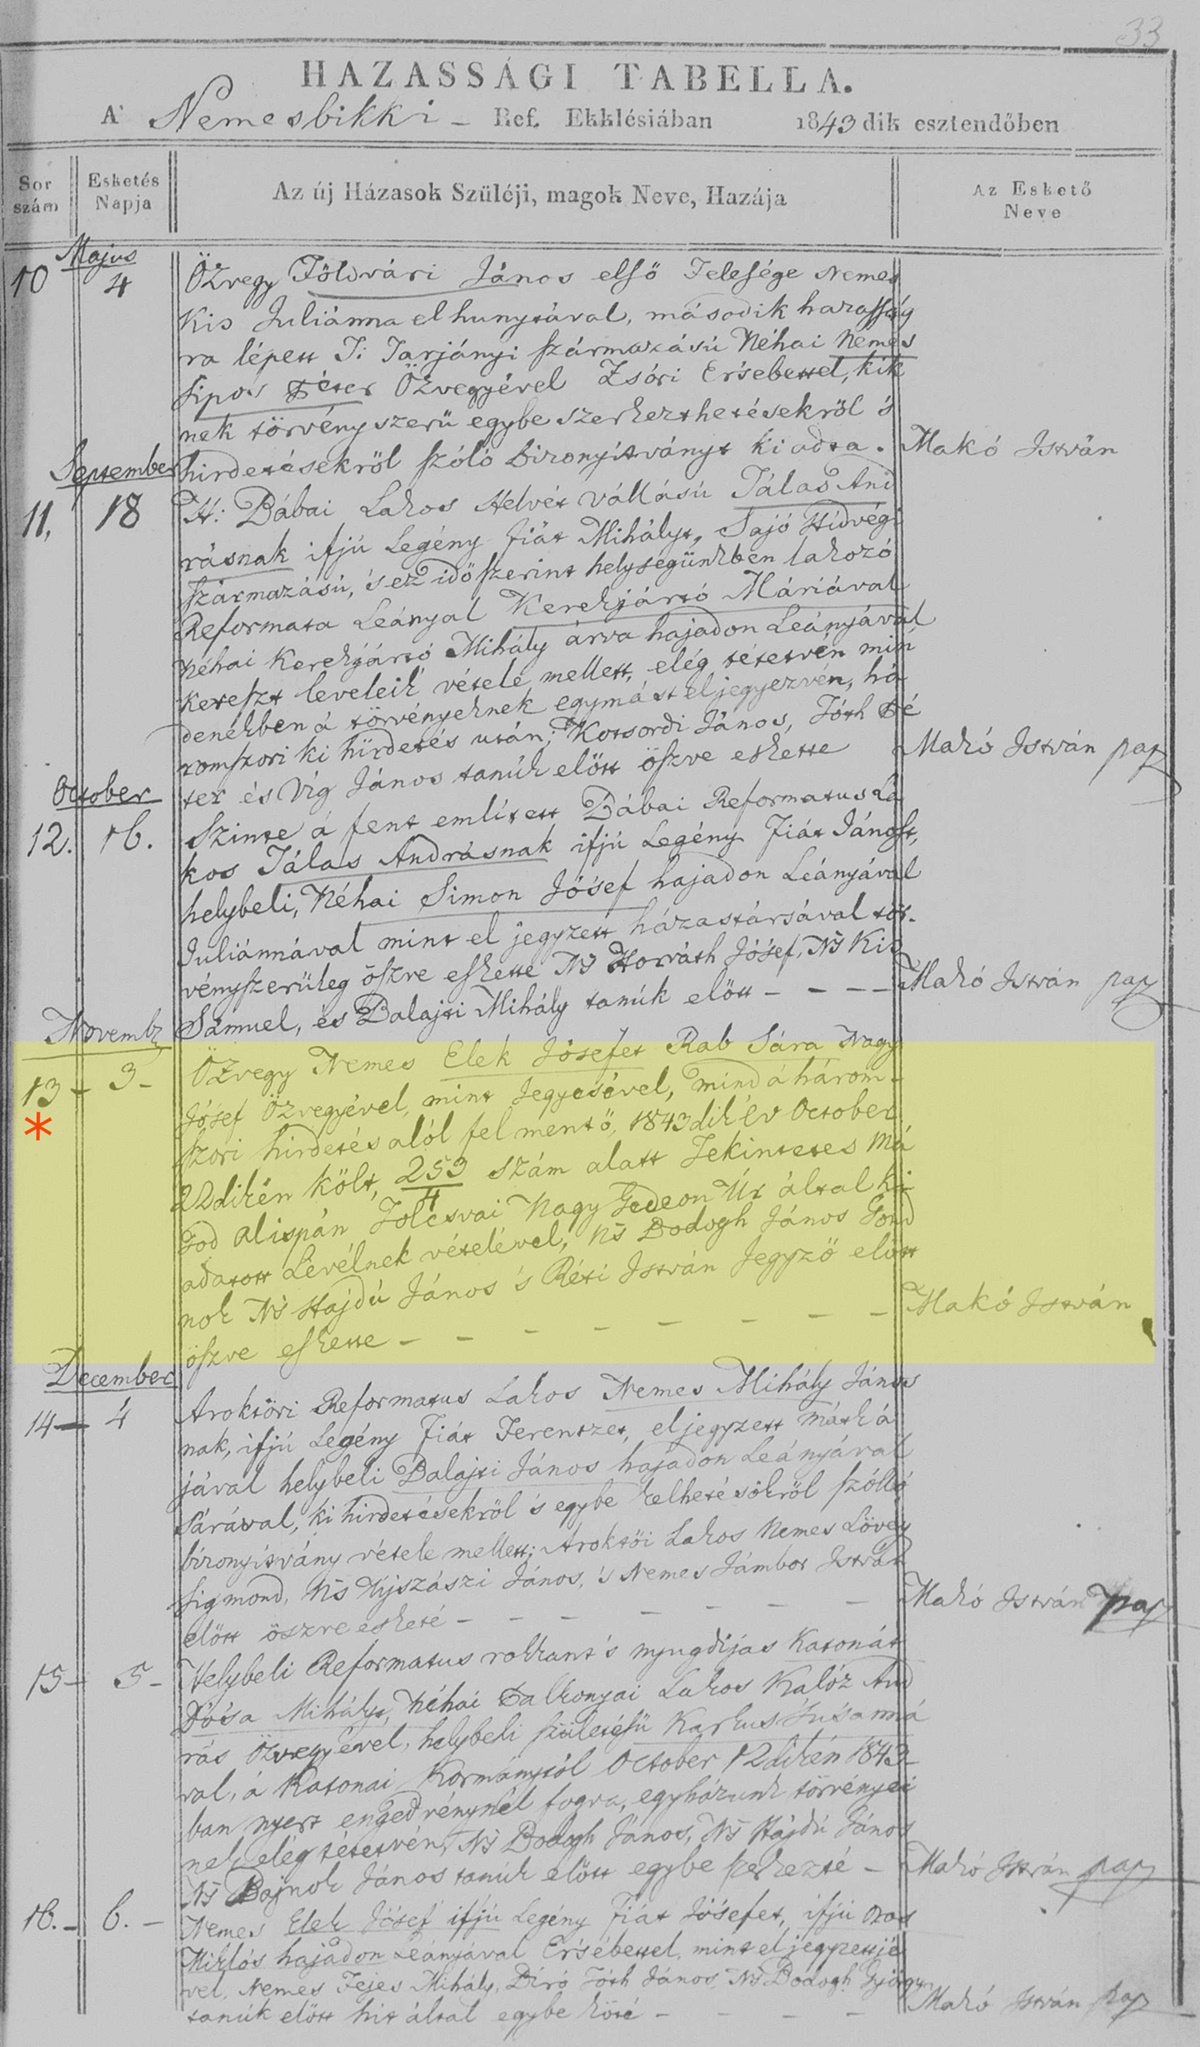 33
HAZASSÁGI TABELLA.
A' Nemesbikki – Ref. Ekklésiában 1843dik esztendőben
Sor szám
Esketés Napja
Az új Házasok Szüléji, magok Neve, Hazája
Az Eskető Neve
Majus
10 4
Özvegy Földvári János első Felesége Nemes
Kis Juliánna elhunytával, második hazasság
ra lépett T: Tarjányi származású Néhai Nemes
Sipos Péter Özvegyével Zsóri Ersebettel, kik
nek törvényszerű egybeszerkezthetésekről s
hirdetésekröl szóló bizonyítványt kiadta. Makó István
September
11, 18
H: Bábai Lakos Helvét vállású Tálas And
rásnak ifjú Legény Fiát Mihályt, Sajó Hídvégi
származású, 's ez idő szerint helységünkben lakozó
Reformata Leányal Kerekjártó Máriával
Néhai Kerekjártó Mihály árva hajadon Leányával
kereszt leveleik vétele mellett, elég tétetvén min
denékben á törvényeknek egymást eljegyezvén, há
romszori ki hirdetés után; Kotsordi János, Tóth Pé
ter és Víg János tanúk elött öszve eskette Makó István pap
October
12. 16.
Szinte á fent említett Bábai Reformatus La
kos Tálas Andrásnak ifjú Legény Fiát Jánost,
helybeli, Néhai Simon Jósef hajadon Leányával
Juliánnával mint el jegyzett házastársával tör-
vényszerüleg öszve eskette Ns Horváth Jósef, Ns Kis
Sámuel, és Balajti Mihály tanúk elött – – – – Makó István pap
Novemb
13 – 3 –
*
Özvegy Nemes Elek Jósefet Rab Sára Nagy
Jósef Özvegyével, mint Jegyesével, mind á három-
szori hirdetés alól fel mentő, 1843dik év October
22dikén költ, 253/4 szám alatt Tekintetes Má
sod alispán, Tolcsvai Nagy Gedeon Úr által ki
adatott Levélnek vételével, Ns Bodogh János Gond
nok Ns Hajdú János 's Réti István Jegyző elött
öszve eskette – – – – – – – – Makó István
December
14 – 4
Aroktöri Reformatus Lakos Nemes Mihály János
nak, ifjú Legény Fiát Ferentzet, eljegyzett mátká
jával helybeli Balajti János hajadon Leányával
Sárával, ki hirdetésekröl 's egybe kelhetésökröl szólló
bizonyítvány vétele mellett; Aroktöi Lakos Nemes Lövey
Sigmond, Ns Ujszászi János, 's Nemes Jámbor István
elött öszve esketé – – – – – – – Makó István pap
15 – 5 –
Helybeli Reformatus rokkant 's nyugdíjas Katonát
Dósa Mihályt, Néhai Palkonyai Lakos Kalóz And
rás özvegyével, helybeli születésű Karkus Susanná
val, á Katonai Kormánytól October 12dikén 1843
ban nyert engedvénynél fogva, egyházunk törvényei
nek elég tétetvén, Ns Bodogh János, Ns Hajdú János
Ns Bajnok János tanúk elött egybe szerkezté – Makó István pap
16. – 6. –
Nemes Elek Jósef ifjú Legény Fiát Jósefet, ifjú
Miklós hajadon Leányával Ersébettel, mint eljegyzettjé
vel, Nemes Fejes Mihály, Bíró Tóth János, Ns Bodogh György
tanúk elött hit által egybe köté – – – – Makó István pap